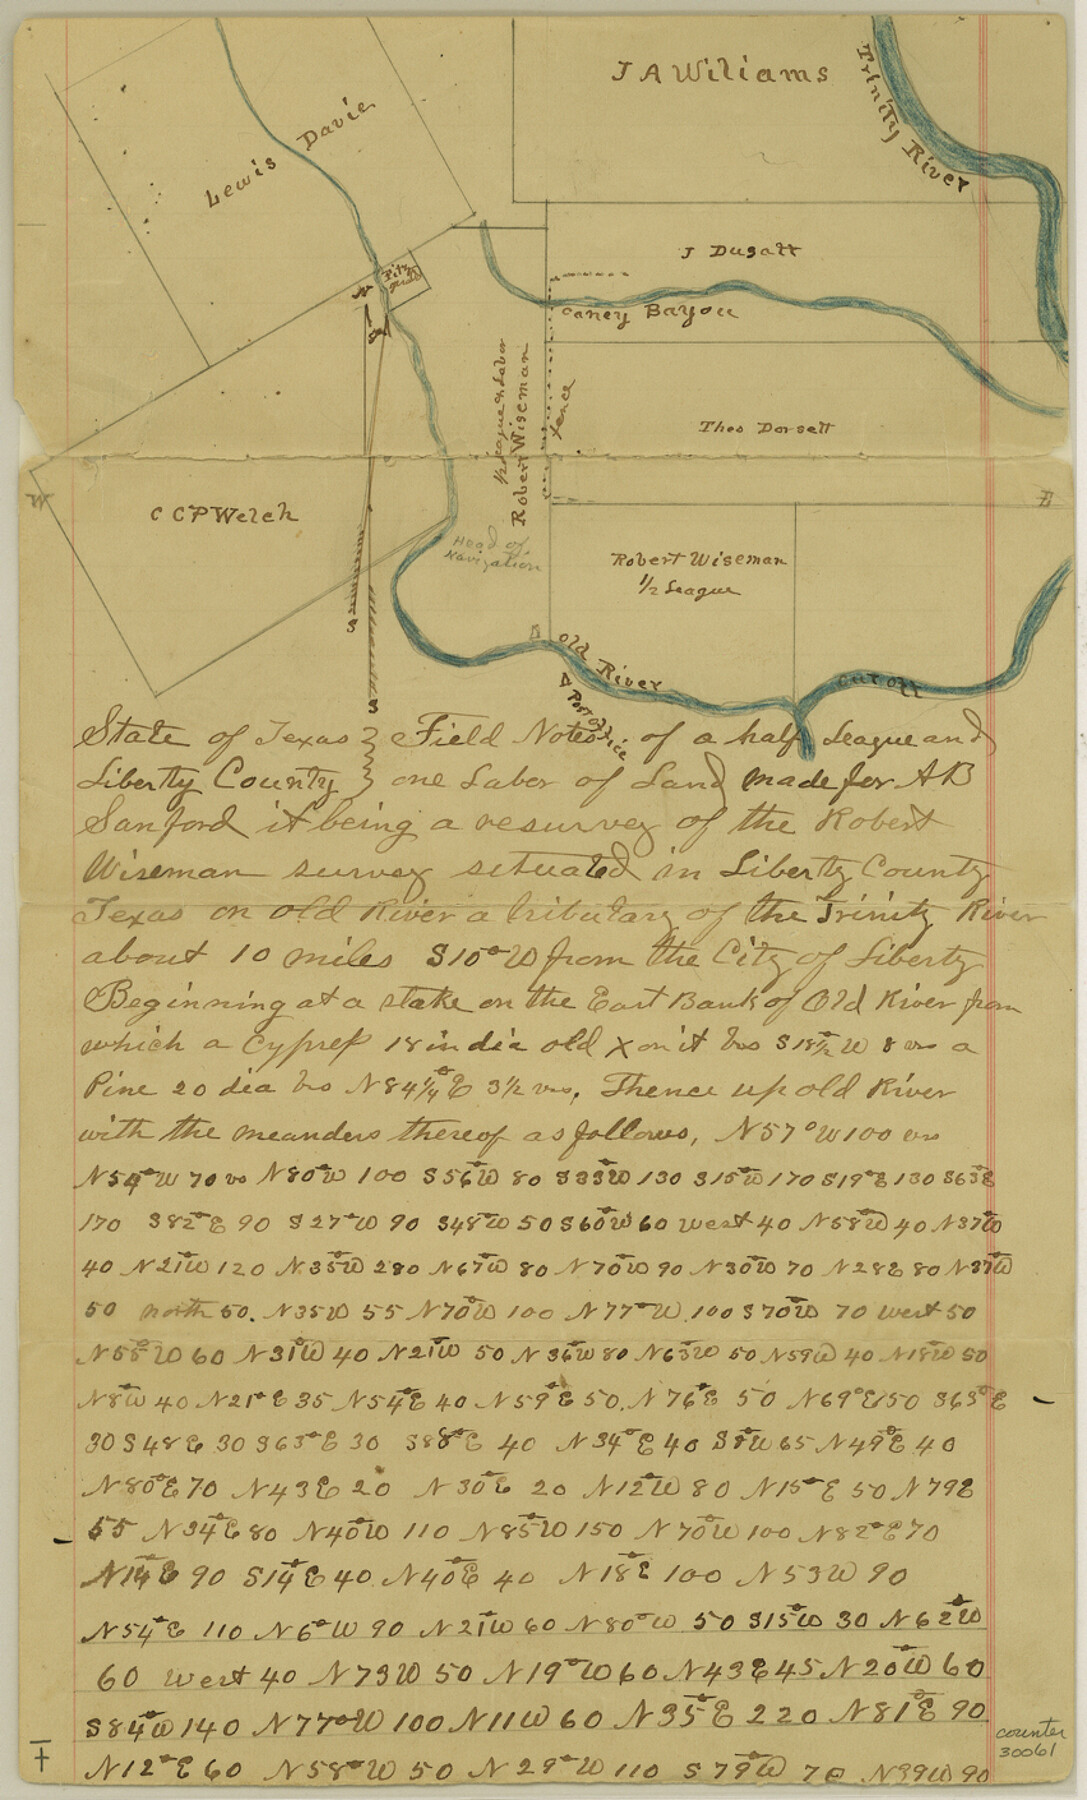 J A Wiliams
Trinity River
Lewis Davie
J Dugatt
Caney Bayou
½ League & Labor
Robert Wiseman
fence
Theo Dorsett
W
E
N
C C P Welch
Head of
Navigation
Robert Wiseman
½ League
S
S
Old River
Post office
Cut off
State of Texas } Field Notes of a half League and
Liberty County } one Labor of Land made for A B
Sanford it being a resurvey of the Robert
Wiseman survey situated in Liberty County
Texas on old River a tributary of the Trinity River
about 10 miles S10°W from the City of Liberty
Beginning at a stake on the East Bank of Old River from
which a Cypress 18 in dia old X on it brs S18½°W 8 vrs a
Pine 20 dia brs N84¼°E 3½ vrs, Thence up old River
with the meanders thereof as follows, N57°W 100 vrs
N54°W 70 vs N80°W 100 S56°W 80 S33°W 130 S15°W 170 S19°E 130 S63°E
170 S82°E 90 S27°W 90 S48°W 50 S60°W 60 West 40 N58°W 40 N37°W
40 N21°W 120 N35°W 280 N67°W 80 N70°W 90 N30°W 70 N28E 80 N37°W
50 north 50. N35W 55 N70°W 100 N77°W 100 S70°W 70 West 50
N55°W 60 N31°W 40 N21°W 50 N36°W 80 N63°W 50 N59W 40 N18°W 50
N8°W 40 N21°E 35 N54°E 40 N59°E 50. N76°E 50 N69°E 50 S63°E
30 S48E 30 S63°E 30 S88°E 40 N34°E 40 S8°W 65 N49°E 40
N80°E 70 N43E 20 N30°E 20 N12°W 80 N15°E 50 N79E
55 N34°E 80 N40°W 110 N85°W 150 N70°W 100 N82°E 70
N14°E 90 S14°E 40 N40°E 40 N18°E 100 N53W 90
N54°E 110 N6°W 90 N21°W 60 N80°W 50 S15°W 30 N62°W
60 West 40 N73W 50 N19°W 60 N43E 45 N20°W 60
S84°W 140 N77°W 100 N11W 60 N35°E 220 N81°E 90
N12°E 60 N58°W 50 N29°W 110 S79°W 70 N39W 90
counter
30061